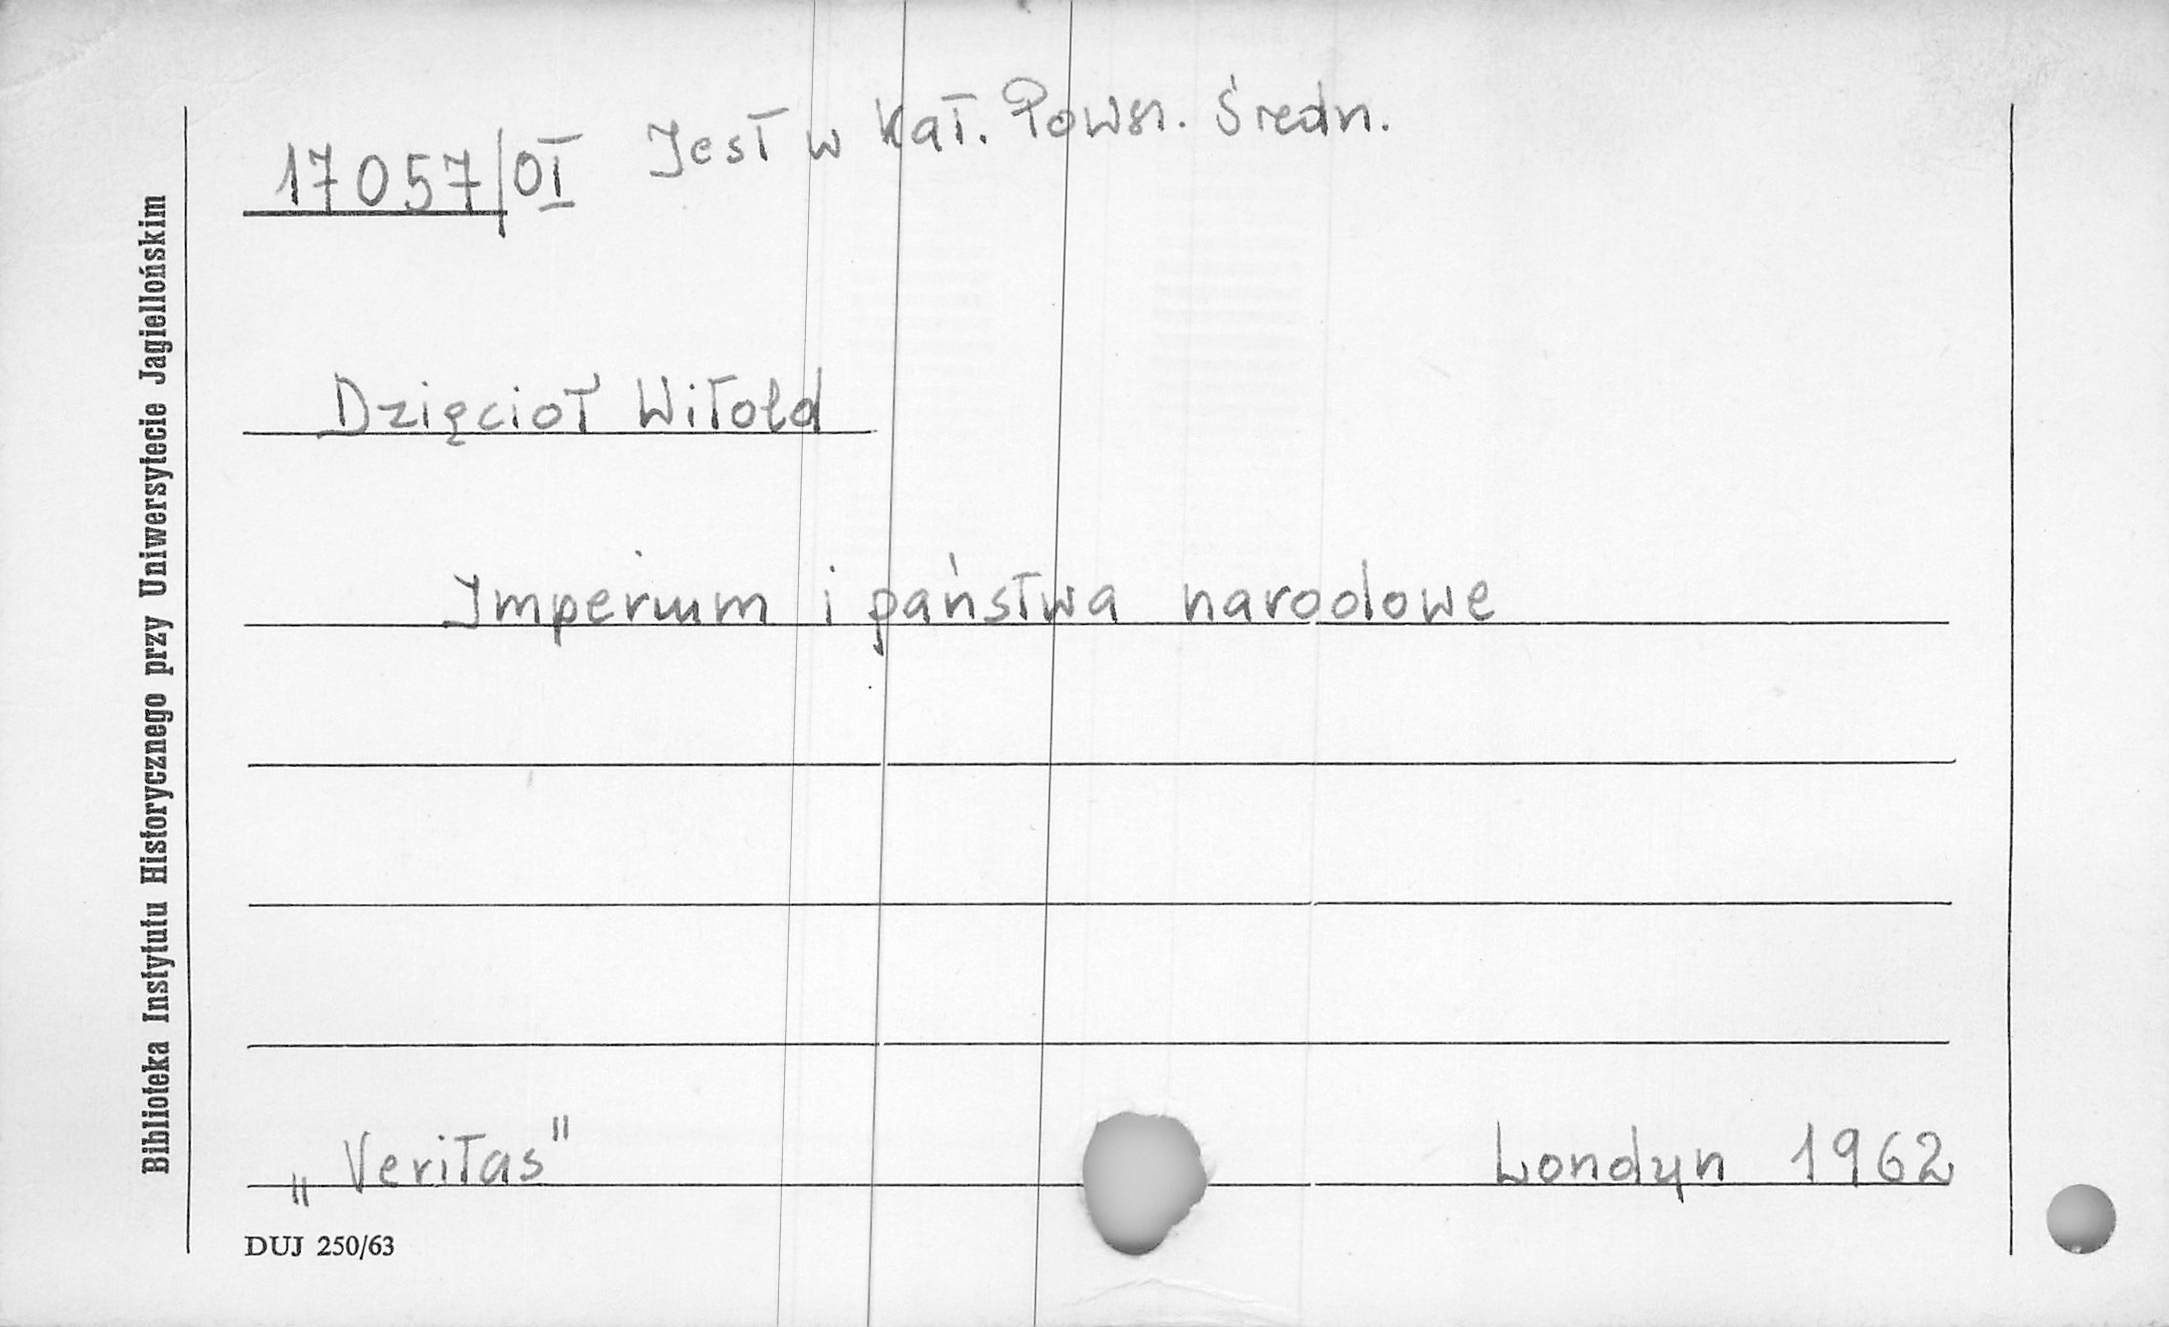 17057/OI Jest w Kat. Powsz. Średn.
Dzięcioł Witold
Imperium i państwa narodowe
„Veritas" Londyn 1962
DUJ 250/63
Biblioteka Instytutu Historycznego przy Uniwersytecie Jagiellońskim